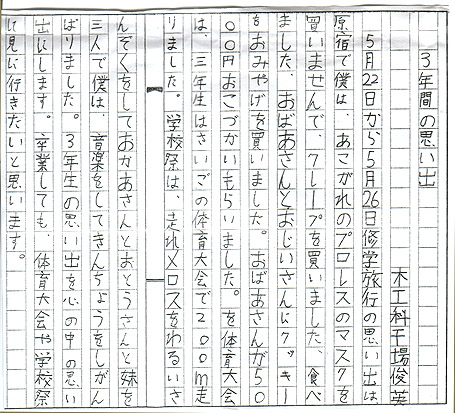 3年間の思い出
木工科干場俊英
5月22日から5月26日修学旅行の思い出は
原宿で僕は、あこがれのプロレスのマスクを
買いませんで、クレープを買いました、食べ
ました、おばあさんとおじいさんにクッキー
をおみやげを買いました。おばあさんが50
00円おこづかいもらいました。を体育大会
は、三年生はさいごの体育大会で200m走
りました。学校祭は、走れメロスをわるいさ
んぞくをしておかあさんとおとうさんと妹を
三人で僕は、音楽をしてきんちょうをしがん
ばりました。3年生の思い出を心の中の思い
出にします。卒業しても、体育大会や学校祭
に見に行きたいと思います。